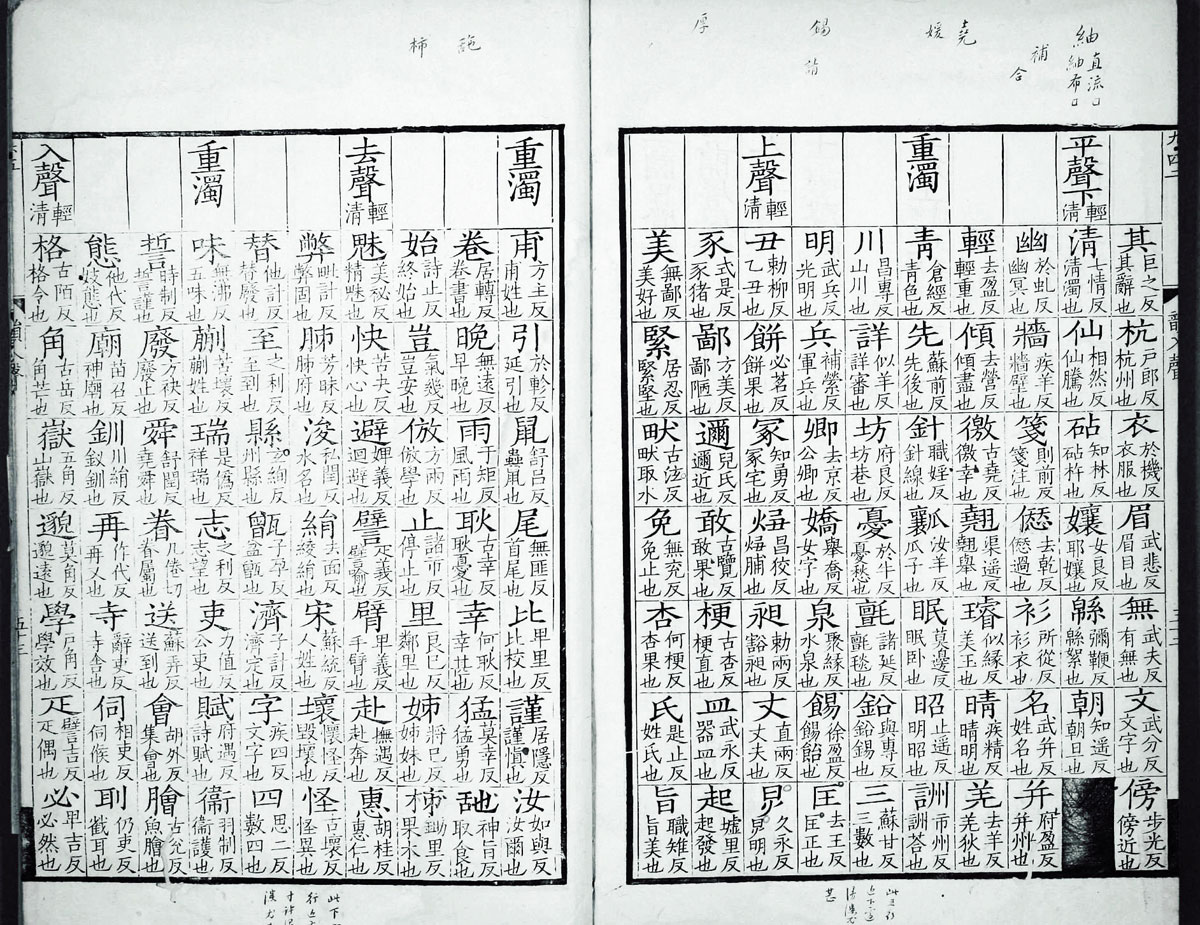 其巨之反其辭也 杭戶郎反杭州也 衣於機反衣服也 眉武悲反眉目也 無武夫反有無也 文武分反文字也 傍步光反傍近也
平聲下輕清 清七情反清濁也 仙相然反仙騰也 砧知林反砧杵也 孃女良反耶孃也 緜彌鞭反緜絮也 朝知遥反朝旦也
幽於虬反幽冥也 牆疾羊反牆壁也 箋則前反箋注也 愆去乾反愆過也 衫所從反衫衣也 名武并反姓名也 并府盈反并州也
輕去盈反輕重也 傾去營反傾盡也 徼古堯反徼幸也 翹渠遥反翹舉也 璿似緣反美玉也 晴疾精反晴明也 羌去羊反羌狄也
重濁 青倉經反青色也 先蘇前反先後也 針職婬反針線也 瓤汝羊反瓜子也 眠莫邊反眠卧也 昭止遥反明昭也 詶市州反詶荅也
川昌專反山川也 詳似羊反詳審也 坊府良反坊巷也 憂於牛反憂愁也 氈諸延反氈毯也 鉛與專反鉛錫也 三蘇甘反三數也
明武兵反光明也 兵補縈反軍兵也 卿去京反公卿也 嬌舉喬反女字也 泉聚緣反水泉也 餳徐盈反餳飴也 匡去王反匡正也
上聲輕清 丑勅柳反乙丑也 餅必茗反餅果也 冢知勇反冢宅也 昌狡反脯也 昶勅兩反豁昶也 丈直兩反丈夫也 久永反明也
豕式是反豕猪也 鄙方美反鄙陋也 邇兒氏反邇近也 敢古覽反敢果也 梗古杏反梗直也 皿武永反器皿也 起墟里反起發也
美無鄙反美好也 緊居忍反緊緊也 畎古泫反畎取水 免無兖反免止也 杏何梗反杏果也 氏是止反姓氏也 旨職雉反旨美也
重濁 甫方主反甫姓也 引於軫反延引也 鼠舒呂反 尾無匪反首尾也 比卑里反比校也 謹居隱反謹慎也 汝如與反汝爾也
卷居轉反卷書也 晚無遠反早晚也 雨于矩反風雨也 耿古幸反耿憂也 幸何耿反也 猛莫幸反猛勇也 神旨反取食也
始詩止反終始也 豈氣幾反豈安也 倣方兩反倣學也 止諸市反停止也 里良巳反鄰里也 姊將巳反姊妹也 柹鋤里反果木也
去聲輕清 魅美祕反精魅也 快苦夬反快心也 避婢義反迴避也 譬疋義反譬喻也 臂卑義反手臂也 赴撫遇反赴奔也 惠胡桂反惠仁也
弊毗計反弊固也 肺芳昧反肺府也 浚私閏反水名也 絹去面反綾絹也 宋蘇統反人姓也 壞懷怪反毀壞也 怪古壞反怪異也
替他計反替廢也 至之利反至到也 縣玄絢反州縣也 甑子孕反盆甑也 濟子計反濟定也 字疾四反文字也 四思二反數四也
重濁 味無沸反五味也 蒯苦壞反蒯姓也 瑞是僞反祥瑞也 志之利反志望也 吏力值反公吏也 賦府遇反詩賦也 衞羽制反衞護也
誓時制反誓謹也 廢方袂反廢止也 舜舒閏反堯舜也 眷几倦切眷屬也 送蘇弄反送到也 會胡外反集會也 膾古兊反魚膾也
態他代反妓態也 廟苗召反神廟也 釧川絹反釵釧也 再作代反再又也 寺辭吏反寺舍也 伺相吏反伺候也 刵仍吏反截耳也
入聲輕清 格古陌反格令也 角古岳反角芒也 嶽五角反山嶽也 邈莫角反邈遠也 學戶角反學效也 疋譬吉反疋偶也 必卑吉反必然也